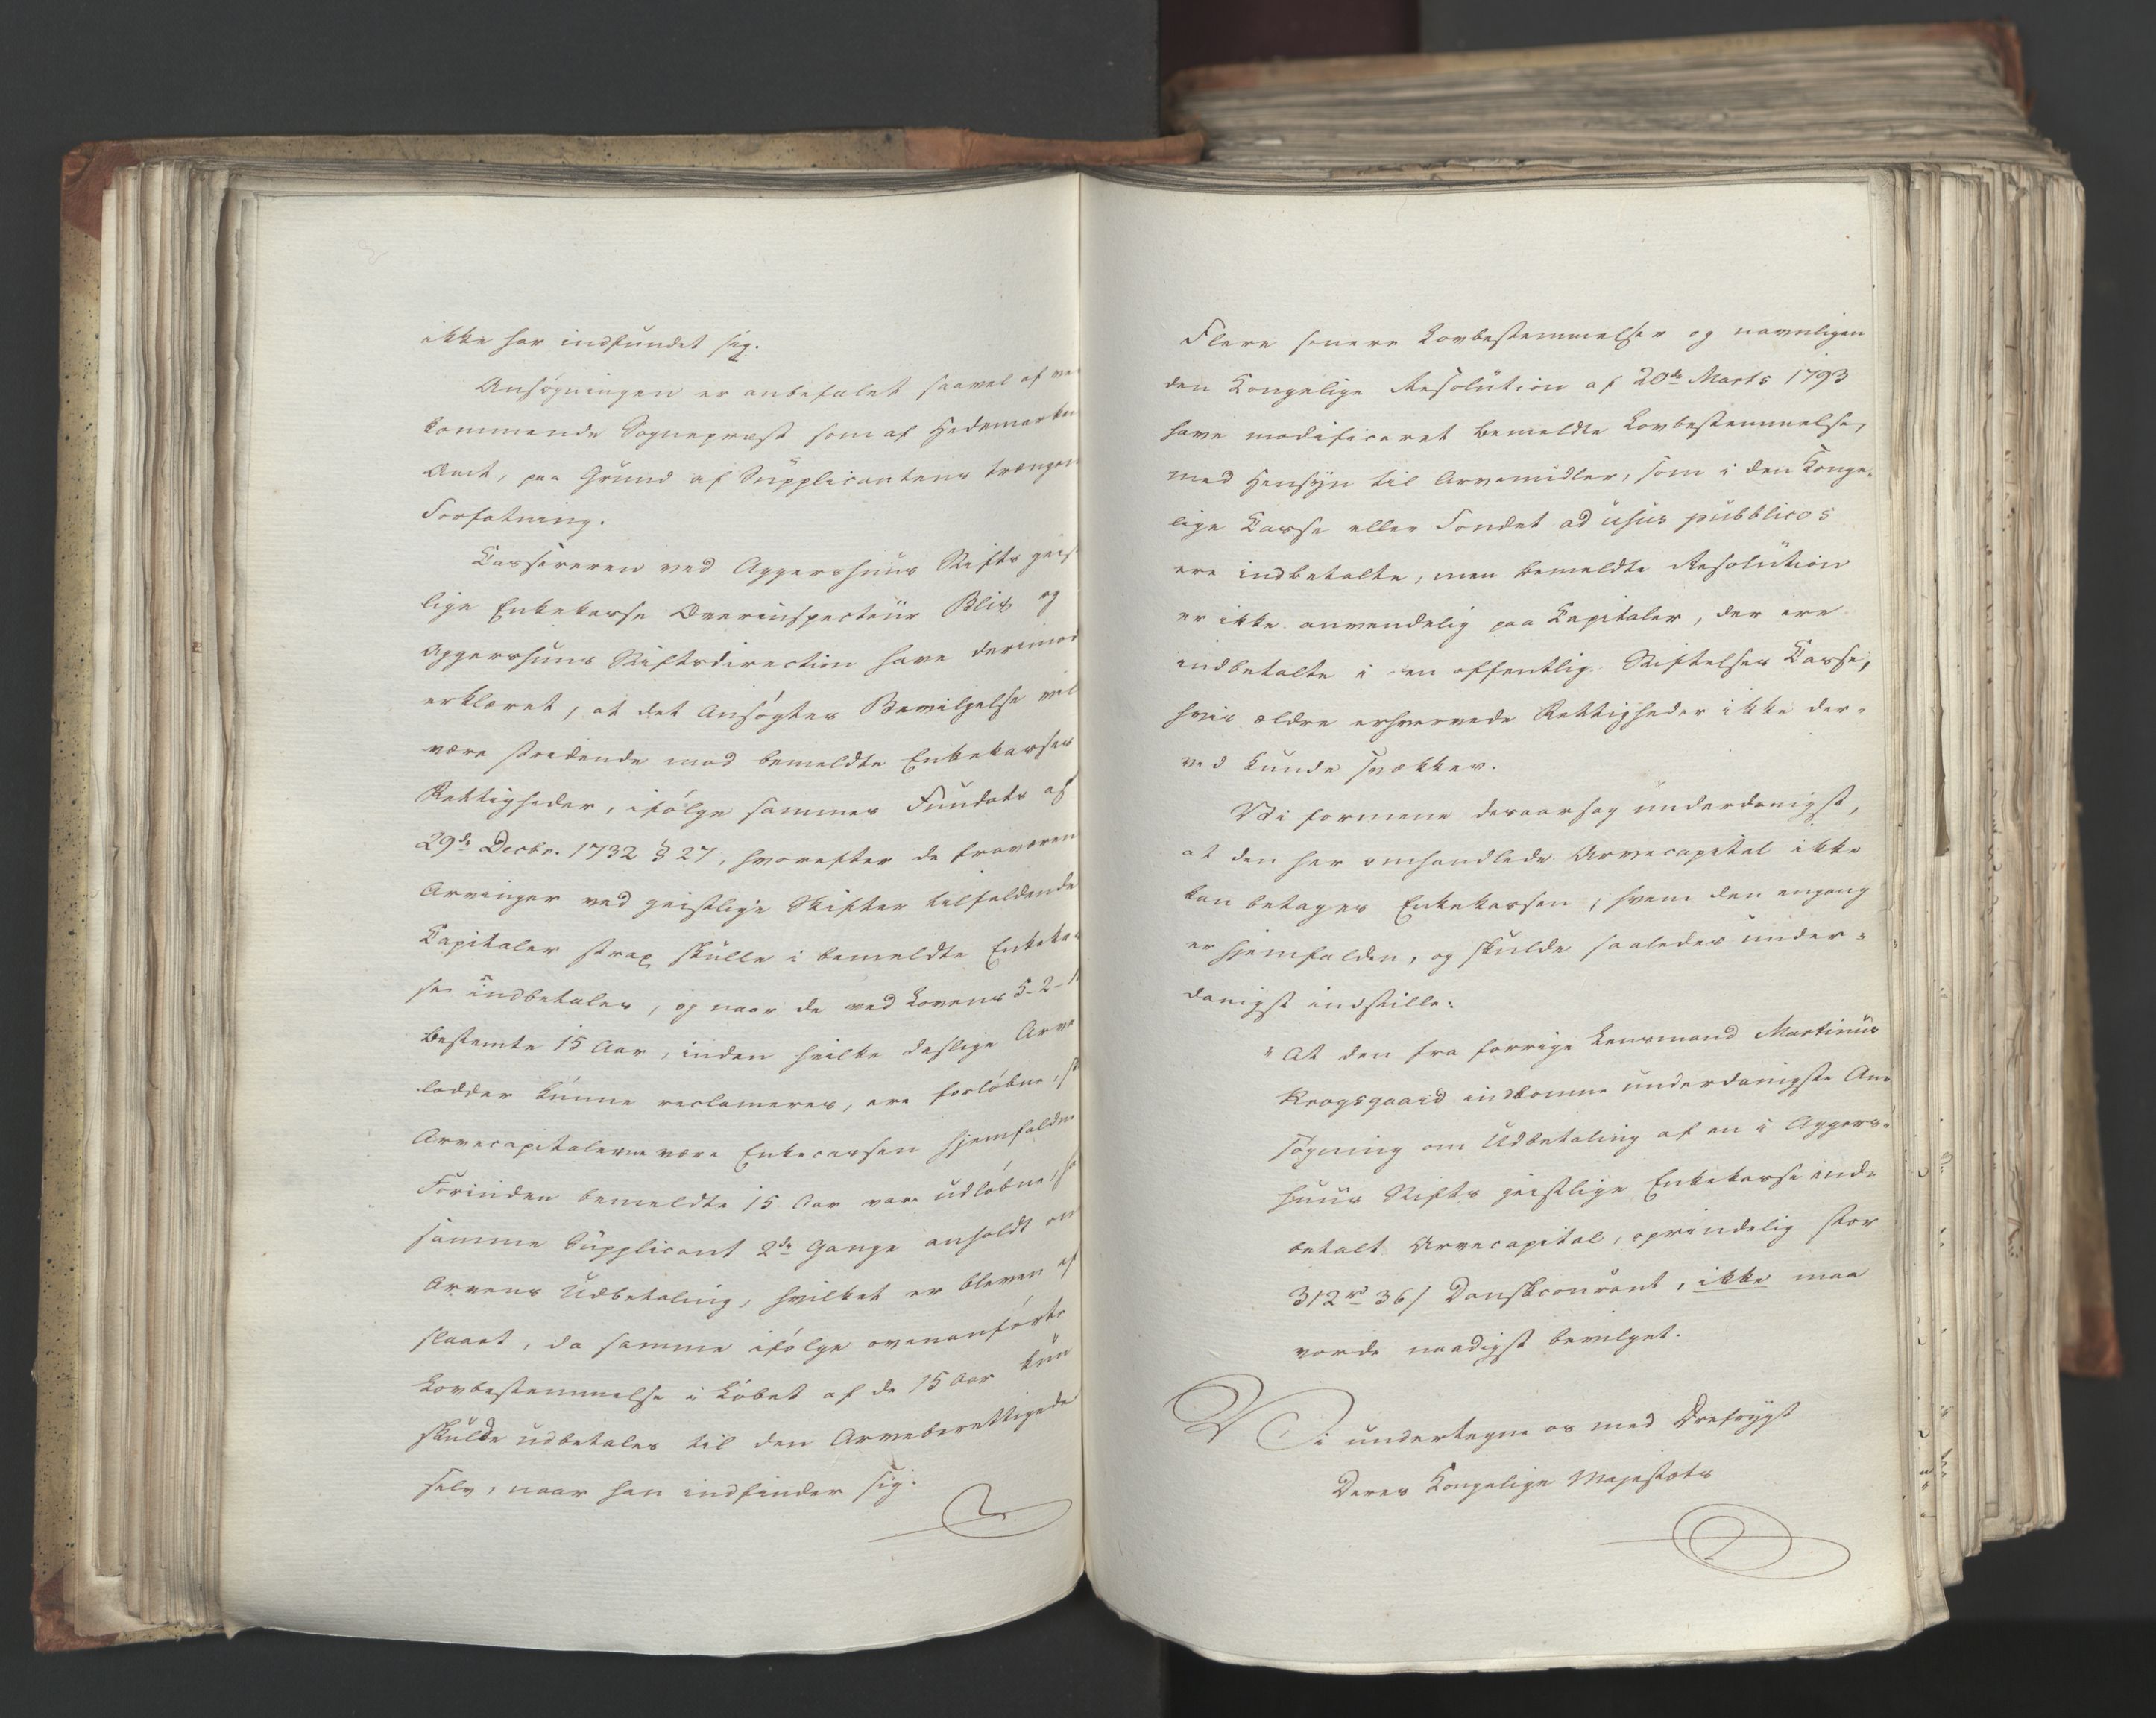 ikke har indfundet sig.
Ansøgningen er anbefalet saavel af ved
kommende Sognepræst som af Hedemarken
Amt, paa Grund af Supplicantens trængen
Forfatning.
Cassereren ved Aggershuus Stifts geist
lige Enkekasse Overinspecteur Blix og
Aggershuus Stiftsdirection have derimod
erklæret, at det Ansøgtes Bevilgelse vil
være stridende mod bemeldte Enkekasses
Rettigheder, ifølge sammes Fundats af
29de Decbr. 1732 § 27, hvorefter de fraværen
Arvinger ved geistlige Skifter tilfaldende
Capitaler strax skulle i bemeldte Enkekas
se indbetales, og naar de ved Lovens 5-2-
bestemte 15 Aar, inden hvilke deslige Arve
lodder kunne reclameres, ere forløbne,
Arvecapitalerne være Enkecassen hjemfaldne
Forinden bemeldte 15 Aar vare udløbne,
samme Supplicant 2de Gange anholdt om
Arvens Udbetaling, hvilket er bleven af
slaaet, da samme ifølge ovenanførte
Lovbestemmelse i Løbet af de 15 Aar kun
skulde udbetales til den Arveberettigede
selv, naar han indfinder sig.
Flere senere Lovbestemmelser og navnligen
den Kongelige Resolution af 20de Marts 1793
have modificeret bemeldte Lovbestemmelse,
med Hensyn til Arvemidler, som i den Konge-
lige Casse eller Fondet ad usus pubblicos
ere indbetalte, men bemeldte Resolution
er ikke anvendelig paa Capitaler, der ere
indbetalte i en offentlig Stiftelses Casse,
hvis ældre erhvervede Rettigheder ikke der-
ved kunde svækkes.
Vi formene desaarsag underdanigst,
at den her omhandlede Arvecapital ikke
kan betages Enkekassen, hvem den engang
er hjemfalden, og skulde saaledes under-
danigst indstille:
"At den fra forrige Lensmand Martinus
Krogsgaard indkomne underdanigste An-
søgning om Udbetaling af en i Aggers-
huus Stifts geistlige Enkekasse ind-
betalt Arvecapital, oprindelig stor
312 rd 36 s Danskcourant, ikke maa
vorde naadigst bevilget.
Vi undertegne os med Ærefrygt
Deres Kongelige Majestæts